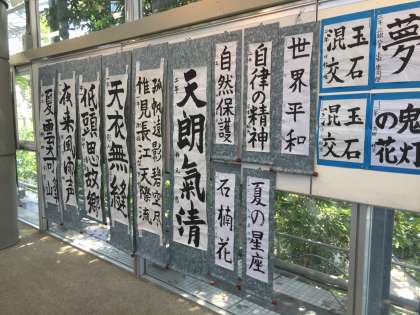 夢
鬼灯
の花
玉石
混交
玉石
混交
世界平和
自律の精神
自然保護
夏の星座
石楠花
天朗氣清
孤帆遠影碧空尽
惟見長江天際流
天衣無縫
低頭思故郷
夜来風雨声
夏雲